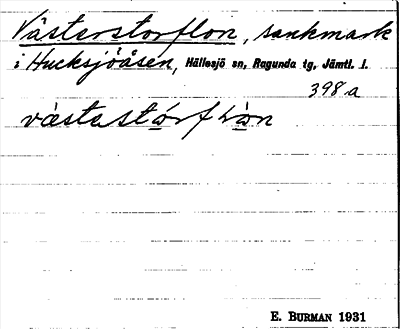 Västerstorflon, sankmark
i Hucksjöåsen, Hällesjö sn, Ragunda tg, Jämtl. l.
398a
E. BURMAN 1931